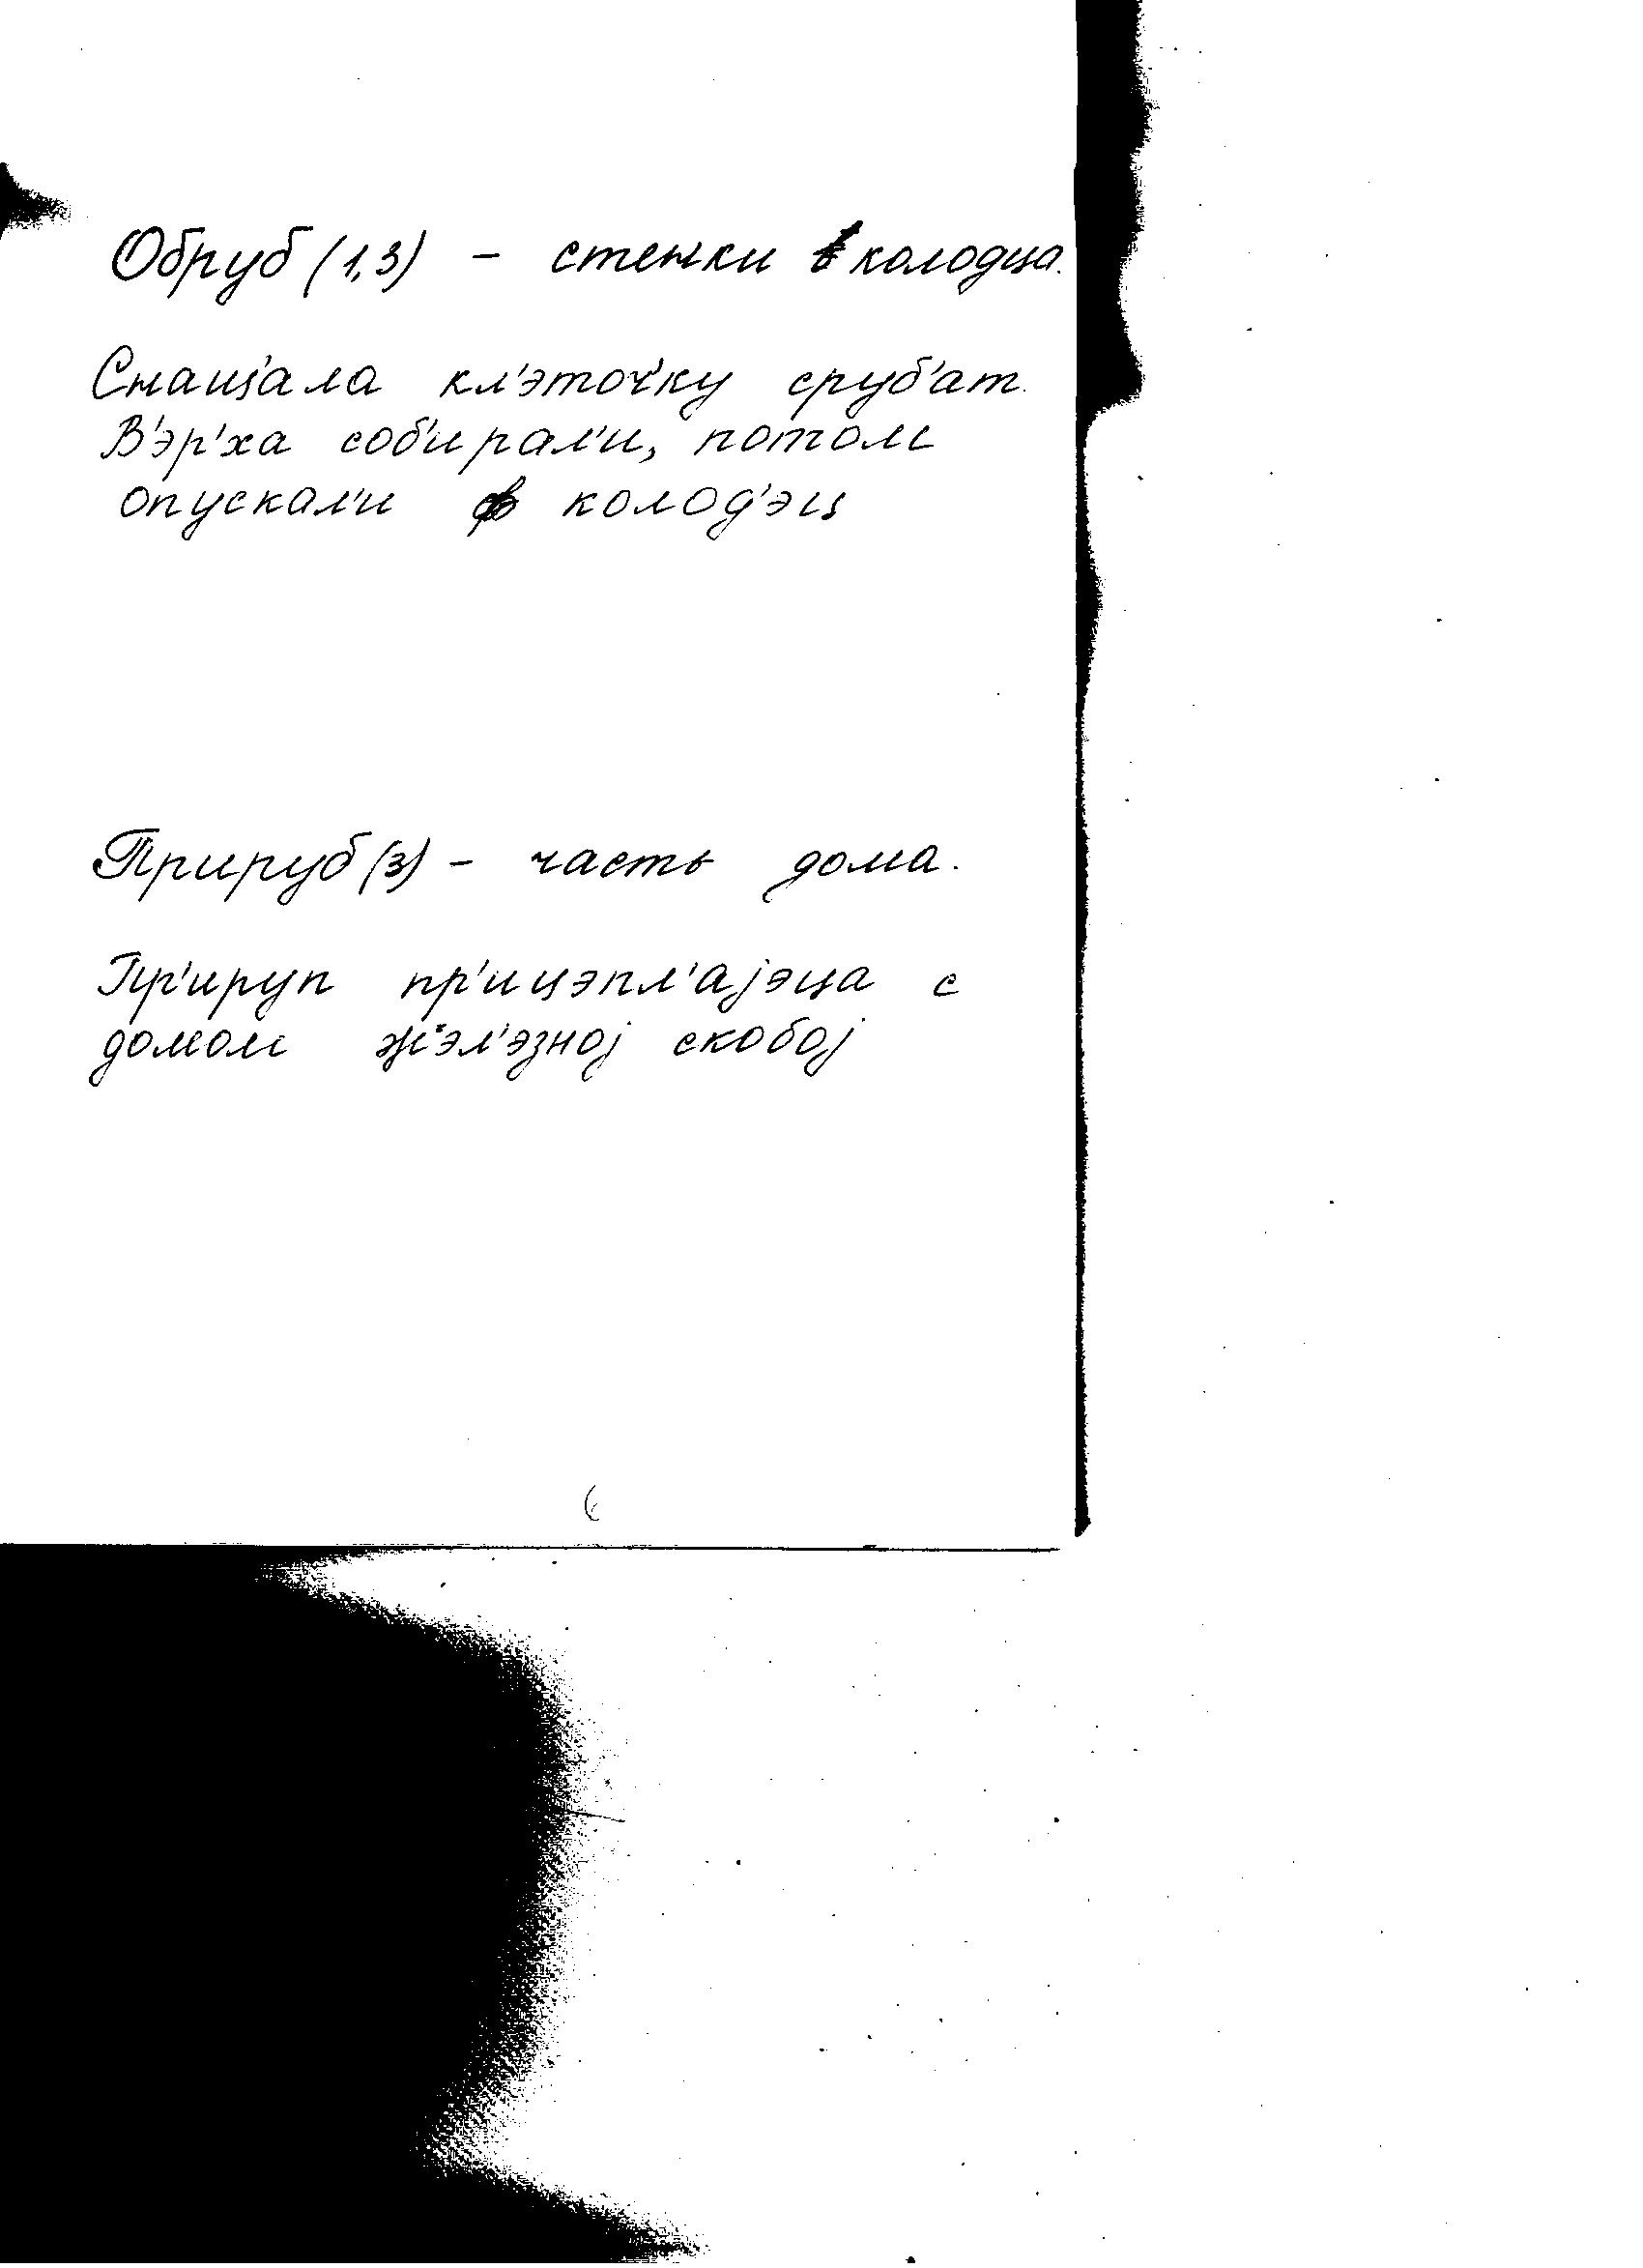 Обруб (1,3) – стенки колодца.
Снащ'ала кл'эточ'ку сруб'ат.
В'эр'ха соб'ирал'и, потом
опускал'и ф колод'эц
Прируб (3) – часть дома.
Пр'ируп пр'ицэпл'аjэца с
домом жэл'эзноj скобоj